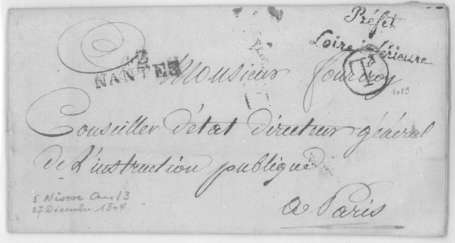 Préfet
Loire inférieure
42
NANTES
P.P.
Monsieur Fourcroy
Conseiller d'état directeur général
de L'instruction publique
a Paris
5 Nivose An 13
27 Décembre 1804